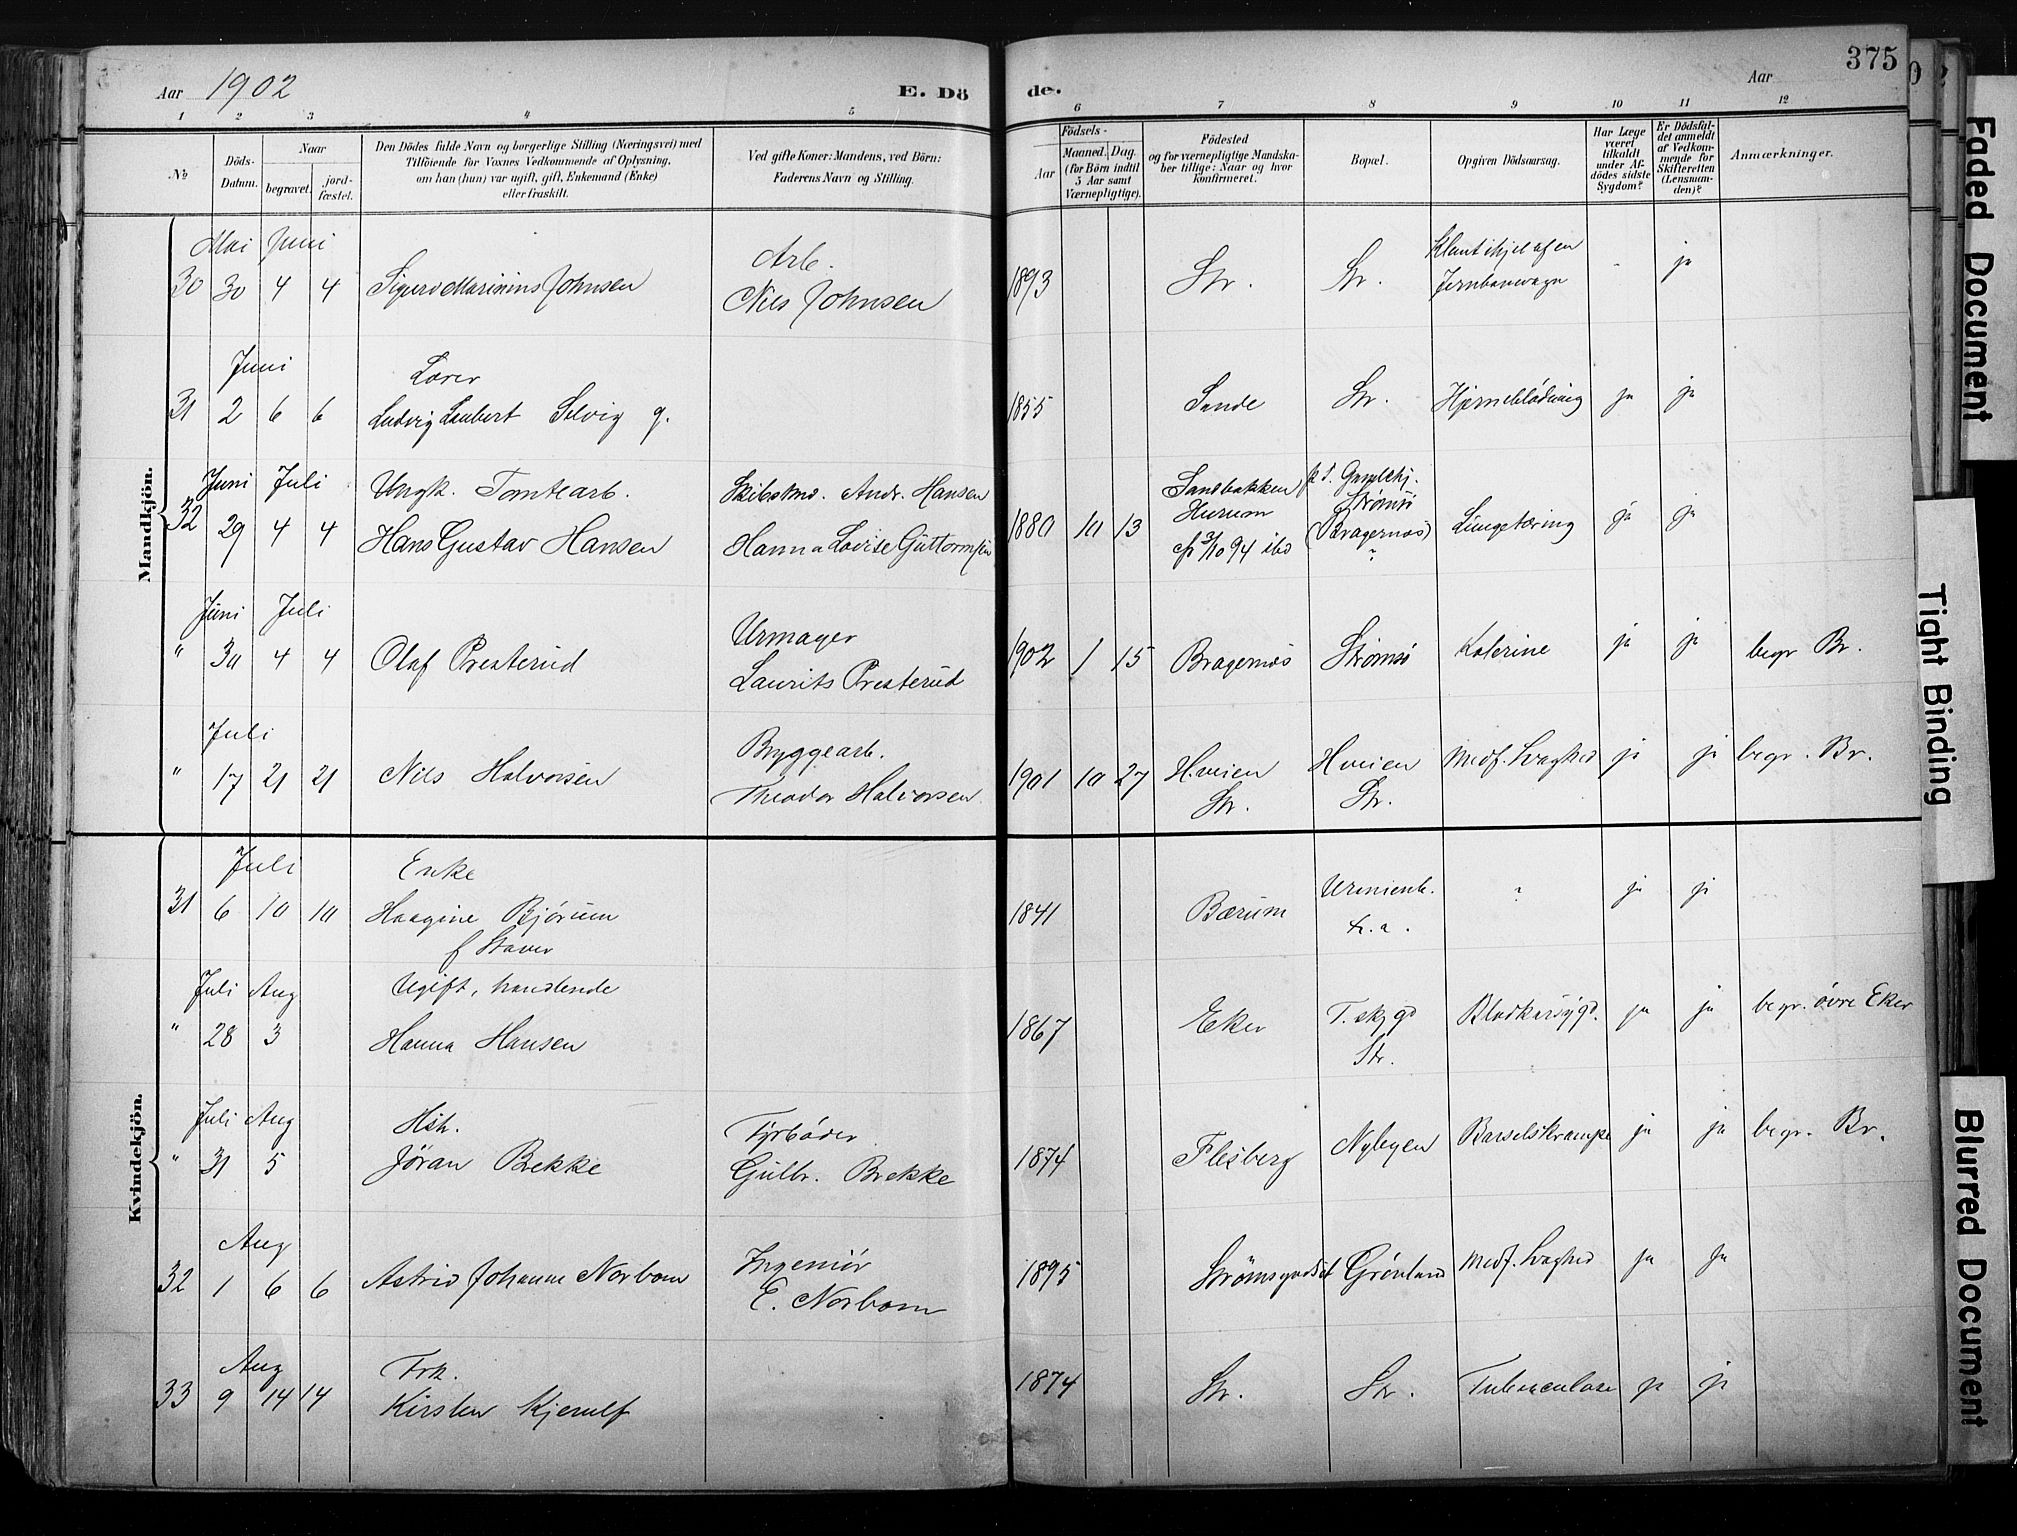 Aar 1902
E. Dö
de.
Aar
375
1 2 3 4 5 6 7 8 9 10 11 12
No
Döds-Datum.
Naar
begravet.
jord-fæstet.
Den Dödes fulde Navn og borgerlige Stilling (Næringsvei) med
Tilföiende for Voxnes Vedkommende af Oplysning,
om han (hun) var ugift, gift, Enkemand (Enke)
eller fraskilt.
Ved gifte Koner: Mandens, ved Börn:
Faderens Navn og Stilling.
Födsels-
Aar
Maaned. Dag.
(for Börn indtil
5 Aar samt
Værnepligtige).
Födested
og for værnepligtige Mandska-
ber tillige: Naar og hvor
konfirmeret.
Bopæl.
Opgiven Dödsaarsag.
Har Læge
været
tilkaldt
under Af-
dödes sidste
Sygdom?
Er Dödsfal-
det anmeldt
af Vedkom-
mende for
Skifteretten
(Lensman-
den)?
Anmærkninger.
Mandkjön.
Mai Juni Arb. Klemt ihjel af en
30 30 4 4 Sigurd Marinius Johnsen Nils Johnsen 1893 Str. Str. Jernbanevagn - ja
Juni Lærer
31 2 6 6 Ludvig Laubert Selvig g. 1855 Sande Str. Hjerneblödning ja ja
Juni Juli Ungk. Tomtearb. Skibstmd. Andr. Hansen Sandbakken
32 29 4 4 Hans Gustav Hansen Hanna Lovise Guttormsen 1880 10 13 Hurum Strømsø (Bragernæs) Lungetæring ja ja
cf 3/10 94 ibd ?
Juni Juli Urmager
" 30 4 4 Olaf Presterud Laurits Presterud 1902 1 15 Bragernæs Strømsø Kolerine ja ja begr Br.
Juli Bryggearb.
" 17 21 21 Nils Halvorsen Theodor Halvorsen 1901 10 27 H.veien Str. H veien Str. Medf. Svaghed ja ja begr. Br.
Kvindekjön.
Juli Enke
31 6 10 10 Haagine Bjørum 1841 Bærum ? ja ja
f Staver
Juli Aug Ugift, handlende
" 28 3 Hanna Hansen 1867 Eker Str. Blodkarsygd. ja ja begr. övre Eker
Juli Aug Hstr. Fyrbøder
" 31 5 Jöran Brekke Gulbr. Brekke 1874 Flesberg Nybyen Barselskrampe ja ja begr. Br.
Aug Ingeniör
32 1 6 6 Astrid Johanne Norbom E. Norbom 1895 Strømsgodset Grønland Medf. Svaghed ja ja
Aug Frk.
33 9 14 14 Kirsten Kjerulf 1874 Str. Str. Tuberculose ja ja
Faded Document
Tight Binding
Blurred Document